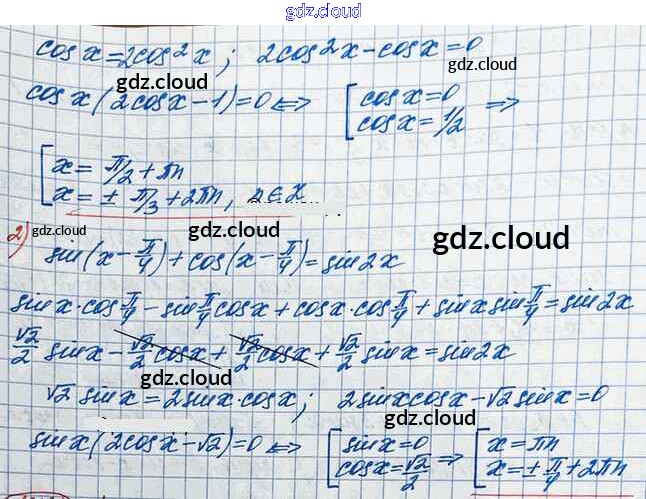 gdz.cloud
cos x = 2cos²x ; 2cos²x - cos x = 0
gdz.cloud gdz.cloud
cos x (2cos x - 1) = 0 ⇔ [ cos x = 0 ⇒
cos x = 1/2
gdz.cloud
[ x = π/2 + πn
x = ± π/3 + 2πn, n ∈ Z
2) gdz.cloud gdz.cloud gdz.cloud
sin(x - π/4) + cos(x - π/4) = sin 2x
sin x · cos π/4 - sin π/4 cos x + cos x · cos π/4 + sin x sin π/4 = sin 2x
√2/2 sin x - √2/2 cos x + √2/2 cos x + √2/2 sin x = sin 2x
gdz.cloud
√2 sin x = 2 sin x · cos x ; 2 sin x cos x - √2 sin x = 0
gdz.cloud gdz.cloud
sin x (2cos x - √2) = 0 ⇔ [ sin x = 0 ⇒ [ x = πn
cos x = √2/2 x = ± π/4 + 2πn
gdz.cloud gdz.cloud